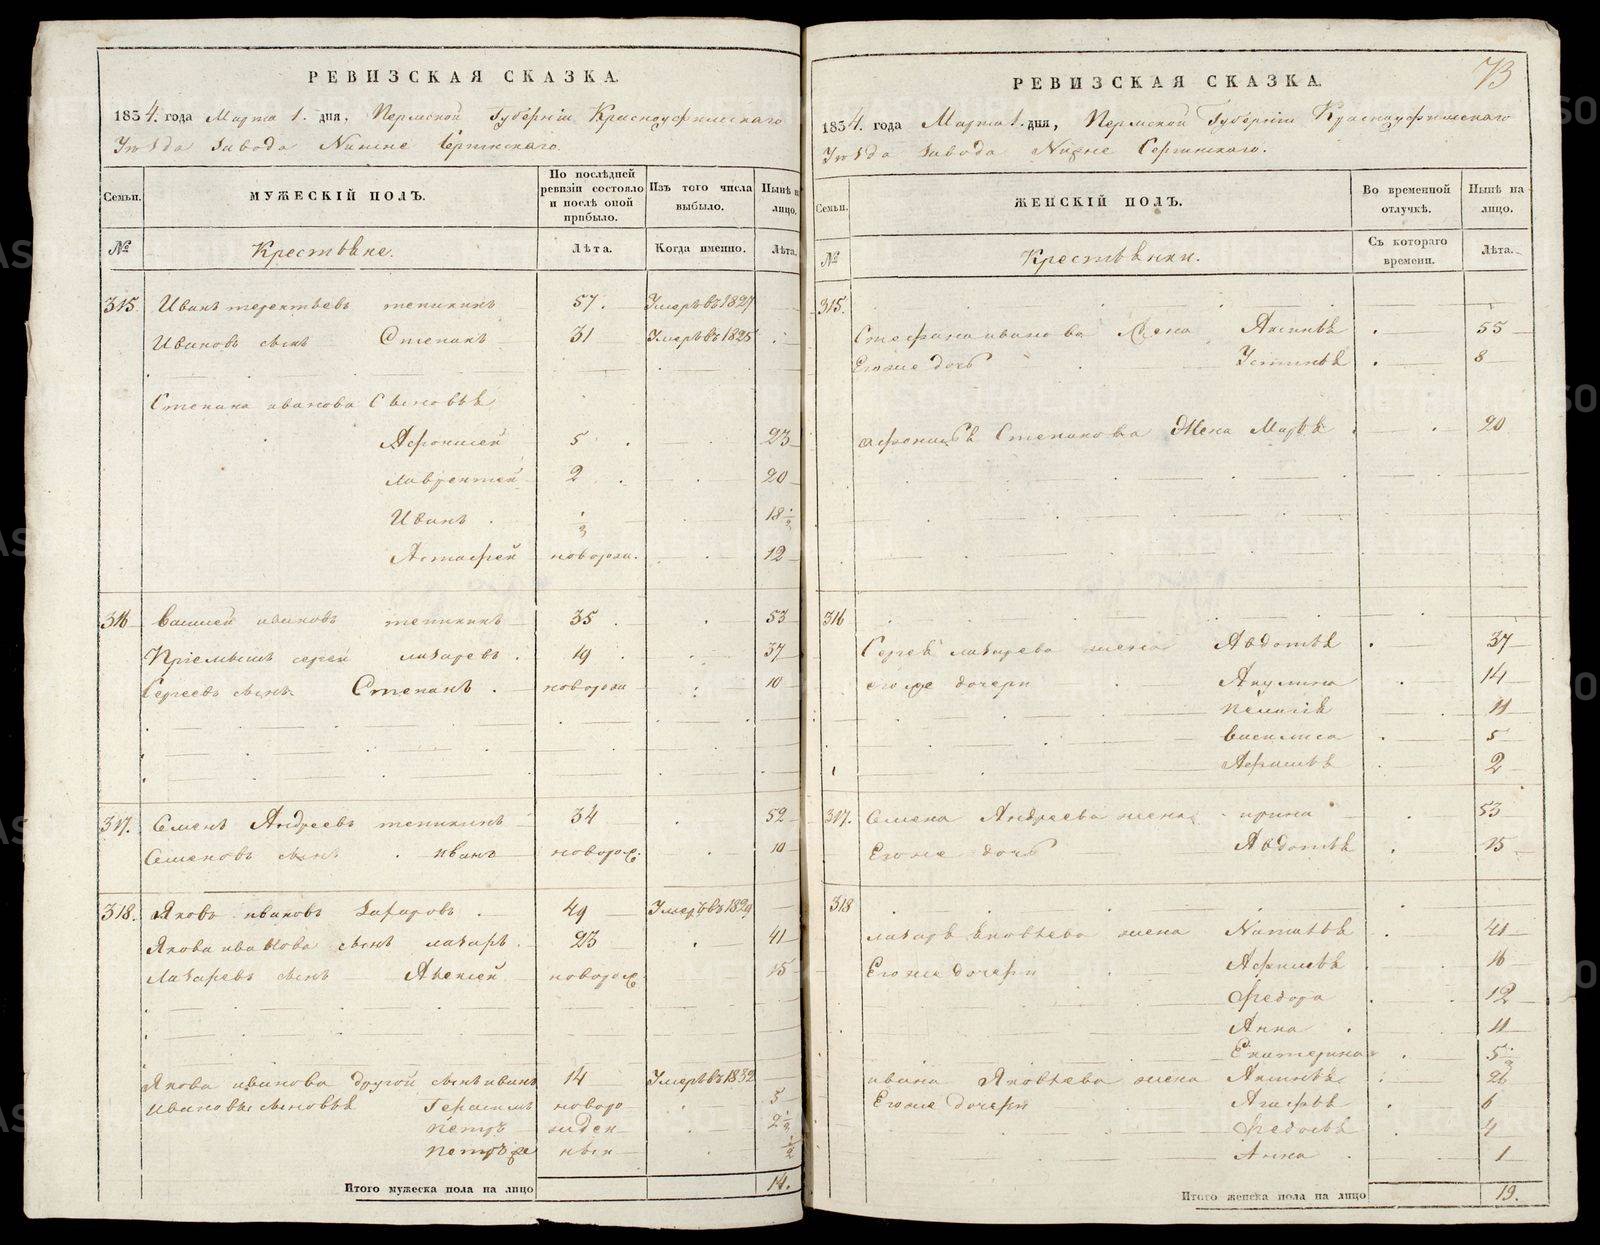 РЕВИЗСКАЯ СКАЗКА.
1834. года Марта 1. дня, Пермской Губерніи Красноуфимскаго
Уѣзда Завода Нижне Сергинскаго.
Семьи.
МУЖЕСКІЙ ПОЛЪ.
По послѣдней ревизіи состояло и послѣ оной прибыло.
Изъ того числа выбыло.
Нынѣ на лицо.
№
Крестьяне.
Лѣта.
Когда именно.
Лѣта.
315 Иванъ терентьевъ тепикинъ 57. Умеръ въ 1827
Ивановъ сынъ Степанъ 31 Умеръ въ 1825
Степана иванова Сыновья
Афонасей 5 23
лаврентей 2 20
Иванъ 18 1/2
Астафей новорож. 12
316 Василей ивановъ тепикинъ 35 53
Пріемышъ сергей лазаревъ 19 37
Сергеевъ сынъ Степанъ новорож 10
317. Семенъ Андреевъ тепикинъ 34 52
Семеновъ сынъ иванъ новорож. 10
318. Яковъ ивановъ Захаровъ 49 Умеръ въ 1829
Якова иванова сынъ лазарь 23 41
Лазаревъ сынъ Алексей новорож. 15
Якова иванова другой сынъ иванъ 14 Умеръ въ 1832
Ивановы сыновья Герасимъ новоро 5
петръ жден 2 1/2
петръ же ныи 1/2
Итого мужеска пола на лицо 14.
73
РЕВИЗСКАЯ СКАЗКА.
1834. года Марта 1. дня, Пермской Губерніи Красноуфимскаго
Уѣзда Завода Нижне Сергинскаго.
Семьи.
ЖЕНСКІЙ ПОЛЪ.
Во временной отлучкѣ.
Нынѣ на лицо.
№
Крестьянки.
Съ котораго времени.
Лѣта.
315.
Степана иванова Жена Аксинья 55
Егоже дочь Устинья 8
Степанова Жена Марья 20
316
Сергея лазарева жена Авдотья 37
егоже дочери Акулина 14
пелагея 11
василиса 5
Афимья 2
317. Семена Андреева жена ирина 53
Егоже дочь Авдотья 15
318
лазаря яковлева жена Наталья 41
Егоже дочери Афимья 16
Федора 12
Анна 11
Екатерина 5 1/2
ивана Яковлева жена Аксинья 26
Егоже дочери Агафья 6
Федосья 4
Анна 1
Итого женска пола на лицо 19.